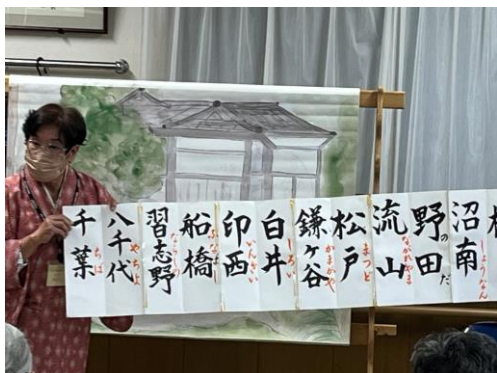 沼南
しょうなん
野田
のだ
流山
ながれやま
松戸
まつど
鎌ヶ谷
かまがや
白井
しろい
印西
いんざい
船橋
ふなばし
習志野
ならしの
八千代
やちよ
千葉
ちば